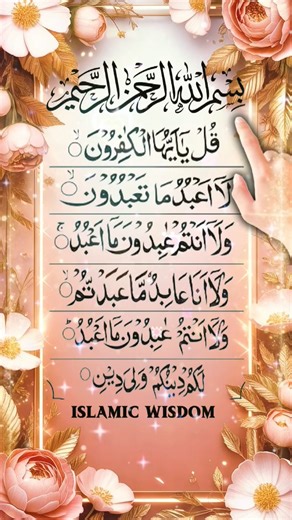 بِسْمِ اللهِ الرَّحْمٰنِ الرَّحِيْمِ
قُلْ يٰۤاَيُّهَا الْكٰفِرُوْنَ ۙ
لَاۤ اَعْبُدُ مَا تَعْبُدُوْنَ ۙ
وَلَاۤ اَنْتُمْ عٰبِدُوْنَ مَاۤ اَعْبُدُ ۚ
وَلَاۤ اَنَا عَابِدٌ مَّا عَبَدْتُّمْ ۙ
وَلَاۤ اَنْتُمْ عٰبِدُوْنَ مَاۤ اَعْبُدُ ؕ
لَكُمْ دِيْنُكُمْ وَلِىَ دِيْنِ
ISLAMIC WISDOM